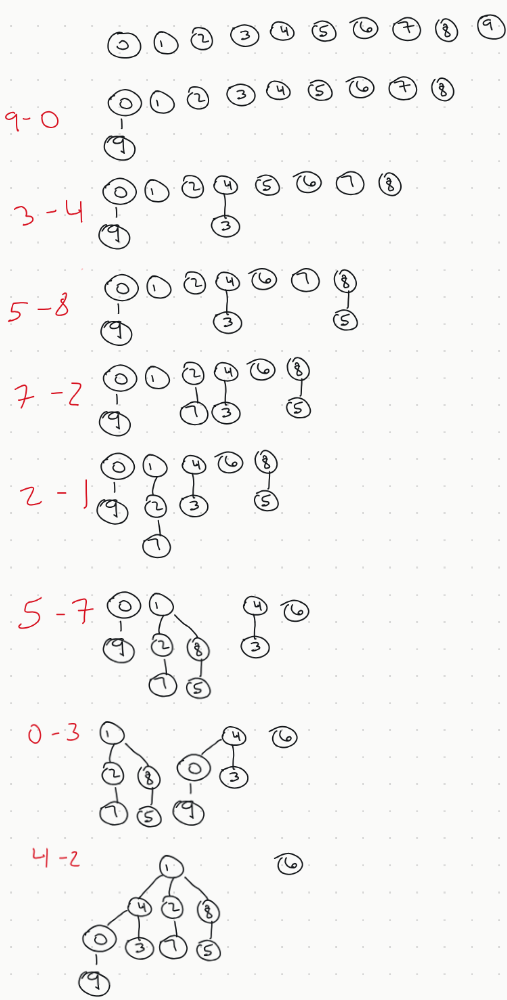 0 1 2 3 4 5 6 7 8 9
9-0 0 1 2 3 4 5 6 7 8
9
3-4 0 1 2 4 5 6 7 8
9 3
5-8 0 1 2 4 6 7 8
9 3 5
7-2 0 1 2 4 6 8
9 7 3 5
2-1 0 1 4 6 8
9 2 3 5
7
5-7 0 1 4 6
9 2 8 3
7 5
0-3 1 4 6
2 8 0 3
7 5 9
4-2 1 6
4 2 8
0 3 7 5
9